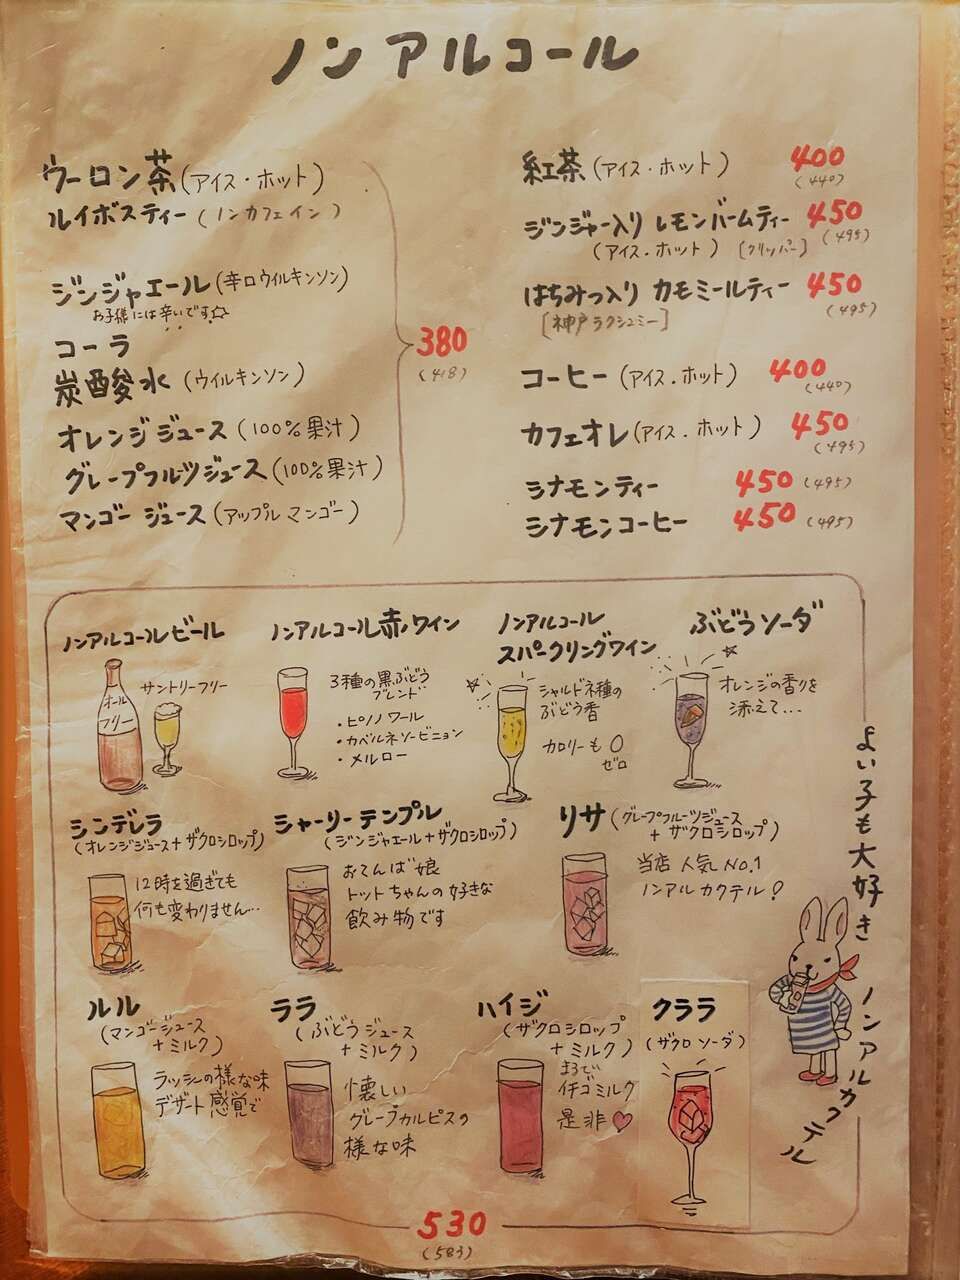 ノンアルコール
ウーロン茶(アイス・ホット)
ルイボスティー(ノンカフェイン)
ジンジャエール(辛口ウィルキンソン)
お子様には辛いです☆
コーラ
炭酸水(ウイルキンソン)
オレンジジュース(100%果汁)
グレープフルーツジュース(100%果汁)
マンゴージュース(アップルマンゴー)
380
(418)
紅茶(アイス・ホット) 400
(440)
ジンジャー入り レモンバームティー 450
(アイス・ホット) [クリッパー] (495)
はちみつ入り カモミールティー 450
[神戸ラクシュミー] (495)
コーヒー(アイス・ホット) 400
(440)
カフェオレ(アイス・ホット) 450
(495)
シナモンティー 450 (495)
シナモンコーヒー 450 (495)
ノンアルコールビール
サントリーフリー
オール
フリー
ノンアルコール赤ワイン
3種の黒ぶどう
ブレンド
・ピノノワール
・カベルネソービニョン
・メルロー
ノンアルコール
スパークリングワイン
シャルドネ種の
ぶどう香
カロリーも0
ゼロ
ぶどうソーダ
オレンジの香りを
添えて…
シンデレラ
(オレンジジュース+ザクロシロップ)
12時を過ぎても
何も変わりません…
シャーリーテンプル
(ジンジャエール+ザクロシロップ)
おてんば娘
トットちゃんの好きな
飲み物です
リサ(グレープフルーツジュース
+ザクロシロップ)
当店人気No.1
ノンアルカクテル!
ルル
(マンゴージュース
+ミルク)
ラッシーの様な味
デザート感覚で
ララ
(ぶどうジュース
+ミルク)
懐しい
グレープカルピスの
様な味
ハイジ
(ザクロシロップ
+ミルク)
まるで
イチゴミルク
是非♥
クララ
(ザクロソーダ)
よい子も大好き
ノンアルカクテル
530
(583)